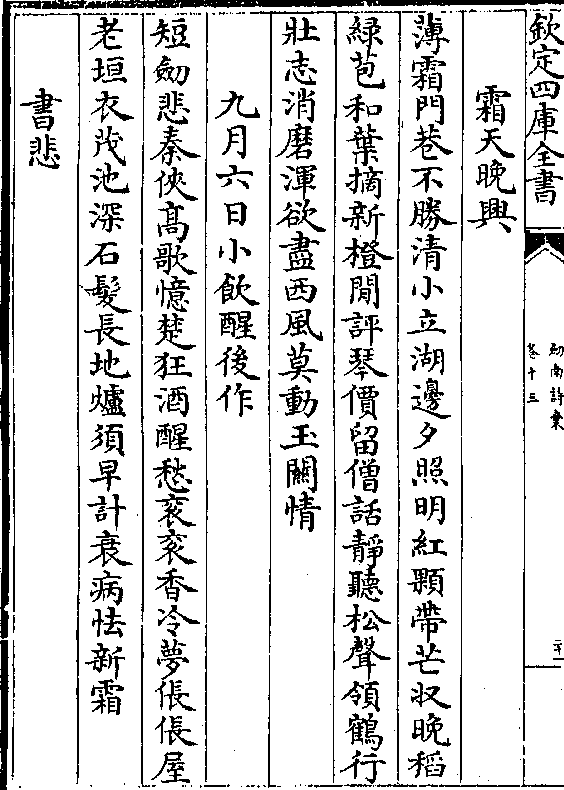 欽定四庫全書
劒南詩藁
卷十三
二十一
霜天晚興
薄霜門巷不勝清小立湖邊夕照明紅顆帶芒収晚稻
緑苞和葉摘新橙閒評琴價留僧話靜聽松聲領鶴行
壯志消磨渾欲盡西風莫動玉關情
九月六日小飲醒後作
短劒悲秦俠髙歌憶楚狂酒醒愁衮衮香冷夢倀倀屋
老垣衣茂池深石髮長地爐須早計衰病怯新霜
書悲